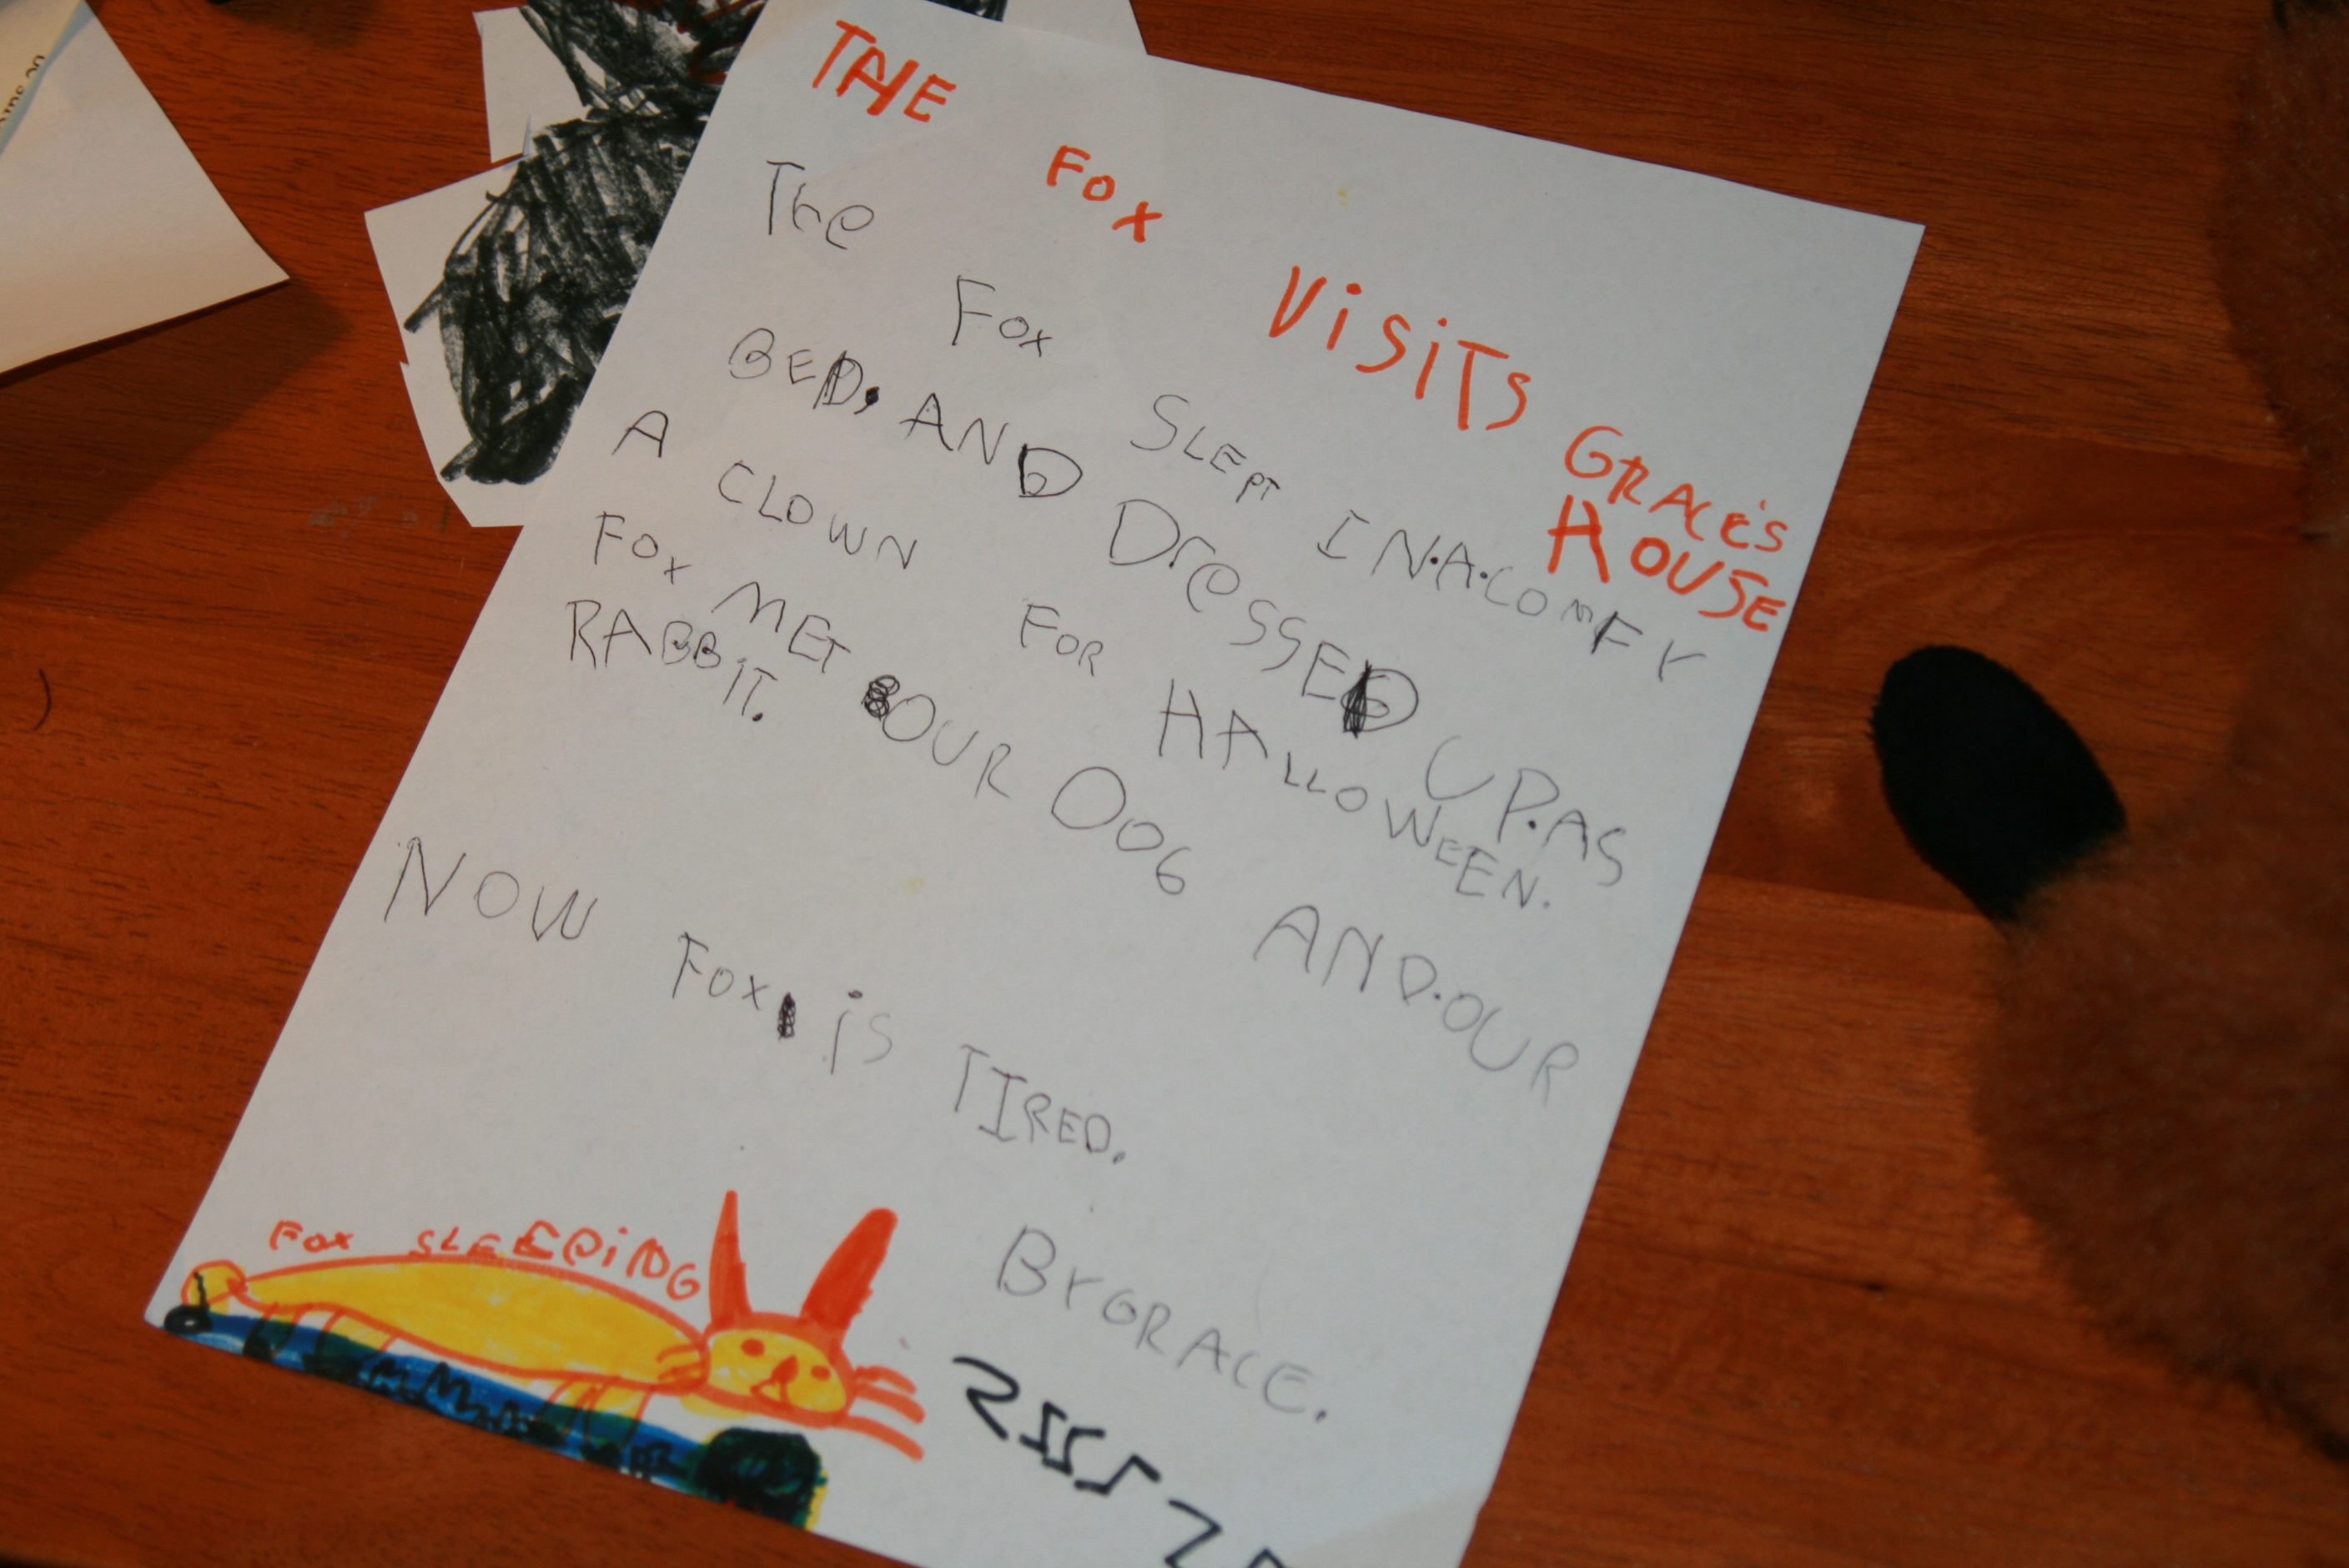 THE FOX VISITS GRACE'S
HOUSE
The Fox SLEPT IN.A.COMFY
BED, AND DreSSED UP.AS
A CLOWN FOR HALLOWEEN.
FOX MET OUR DOG AND.OUR
RABBIT.
NOW FOX iS TIRED.
BY GRACE.
FOX SLEEPiNG